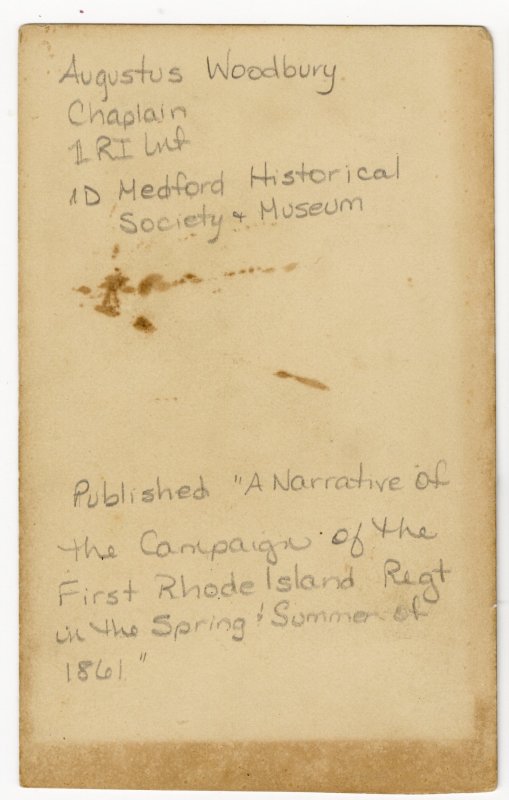 Augustus Woodbury
Chaplain
1 RI Inf
ID Medford Historical
Society + Museum
Published "A Narrative of
the Campaign of the
First Rhode Island Regt
in the Spring & Summer of
1861"